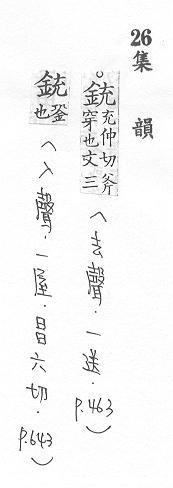 26集韻
○銃充仲切斧穿也文三（去聲．一送．P.463）
銃釜也（入聲．一屋．昌六切．P.643）